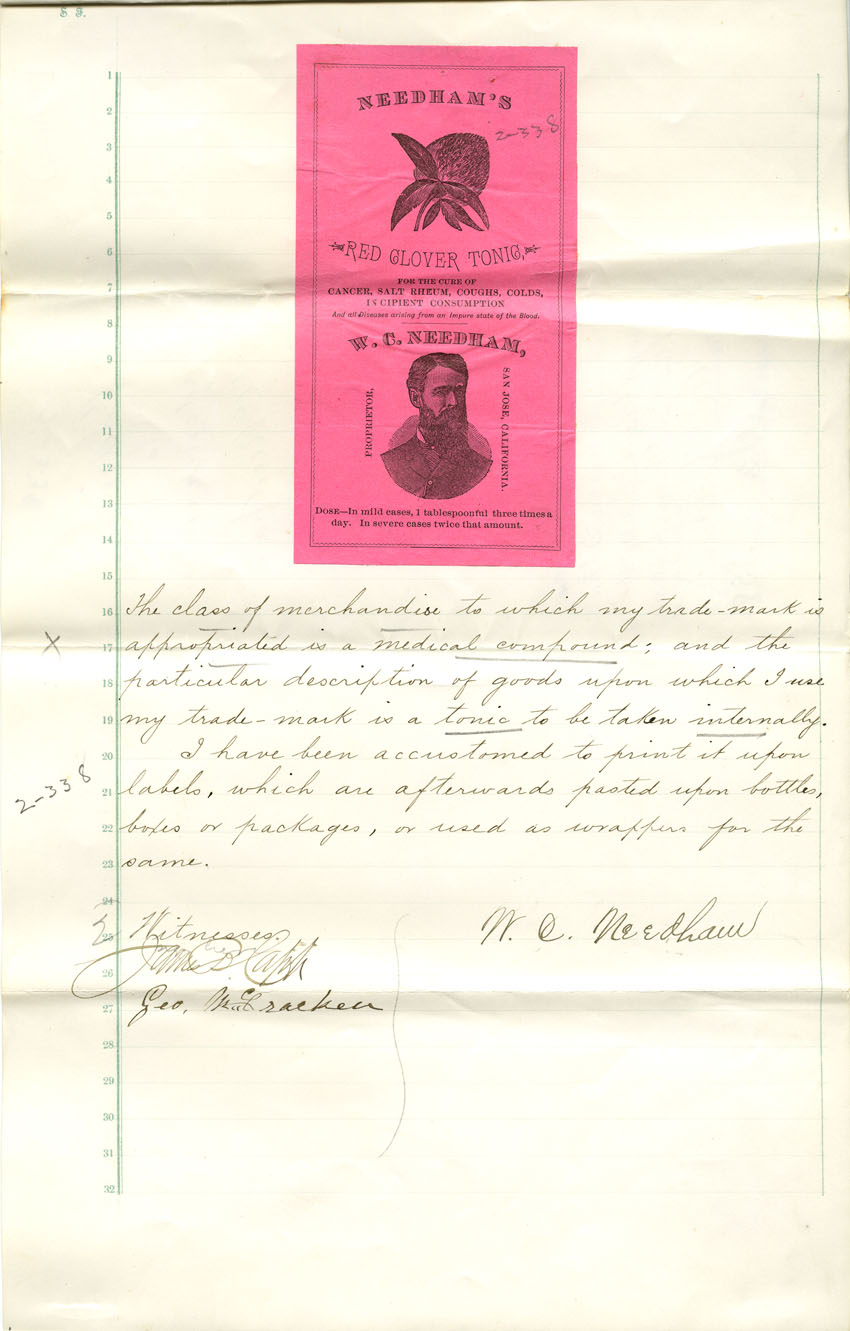 1
2
3
4
5
6
7
8
9
10
11
12
13
14
15
16
17
18
19
20
21
22
23
24
25
26
27
28
29
30
31
32
NEEDHAM'S
2-338
RED CLOVER TONIC,
FOR THE CURE OF
CANCER, SALT RHEUM, COUGHS, COLDS,
INCIPIENT CONSUMPTION
And all Diseases arising from an Impure state of the Blood.
W. C. NEEDHAM,
PROPRIETOR,
SAN JOSE, CALIFORNIA.
DOSE—In mild cases, 1 tablespoonful three times a
day. In severe cases twice that amount.
The class of merchandise to which my trade-mark is
X
appropriated is a medical compound; and the
particular description of goods upon which I use
my trade-mark is a tonic to be taken internally.
I have been accustomed to print it upon
2-338
labels, which are afterwards pasted upon bottles,
boxes or packages, or used as wrappers for the
same.
Witnesses.
W. C. Needham
Geo. McCracken